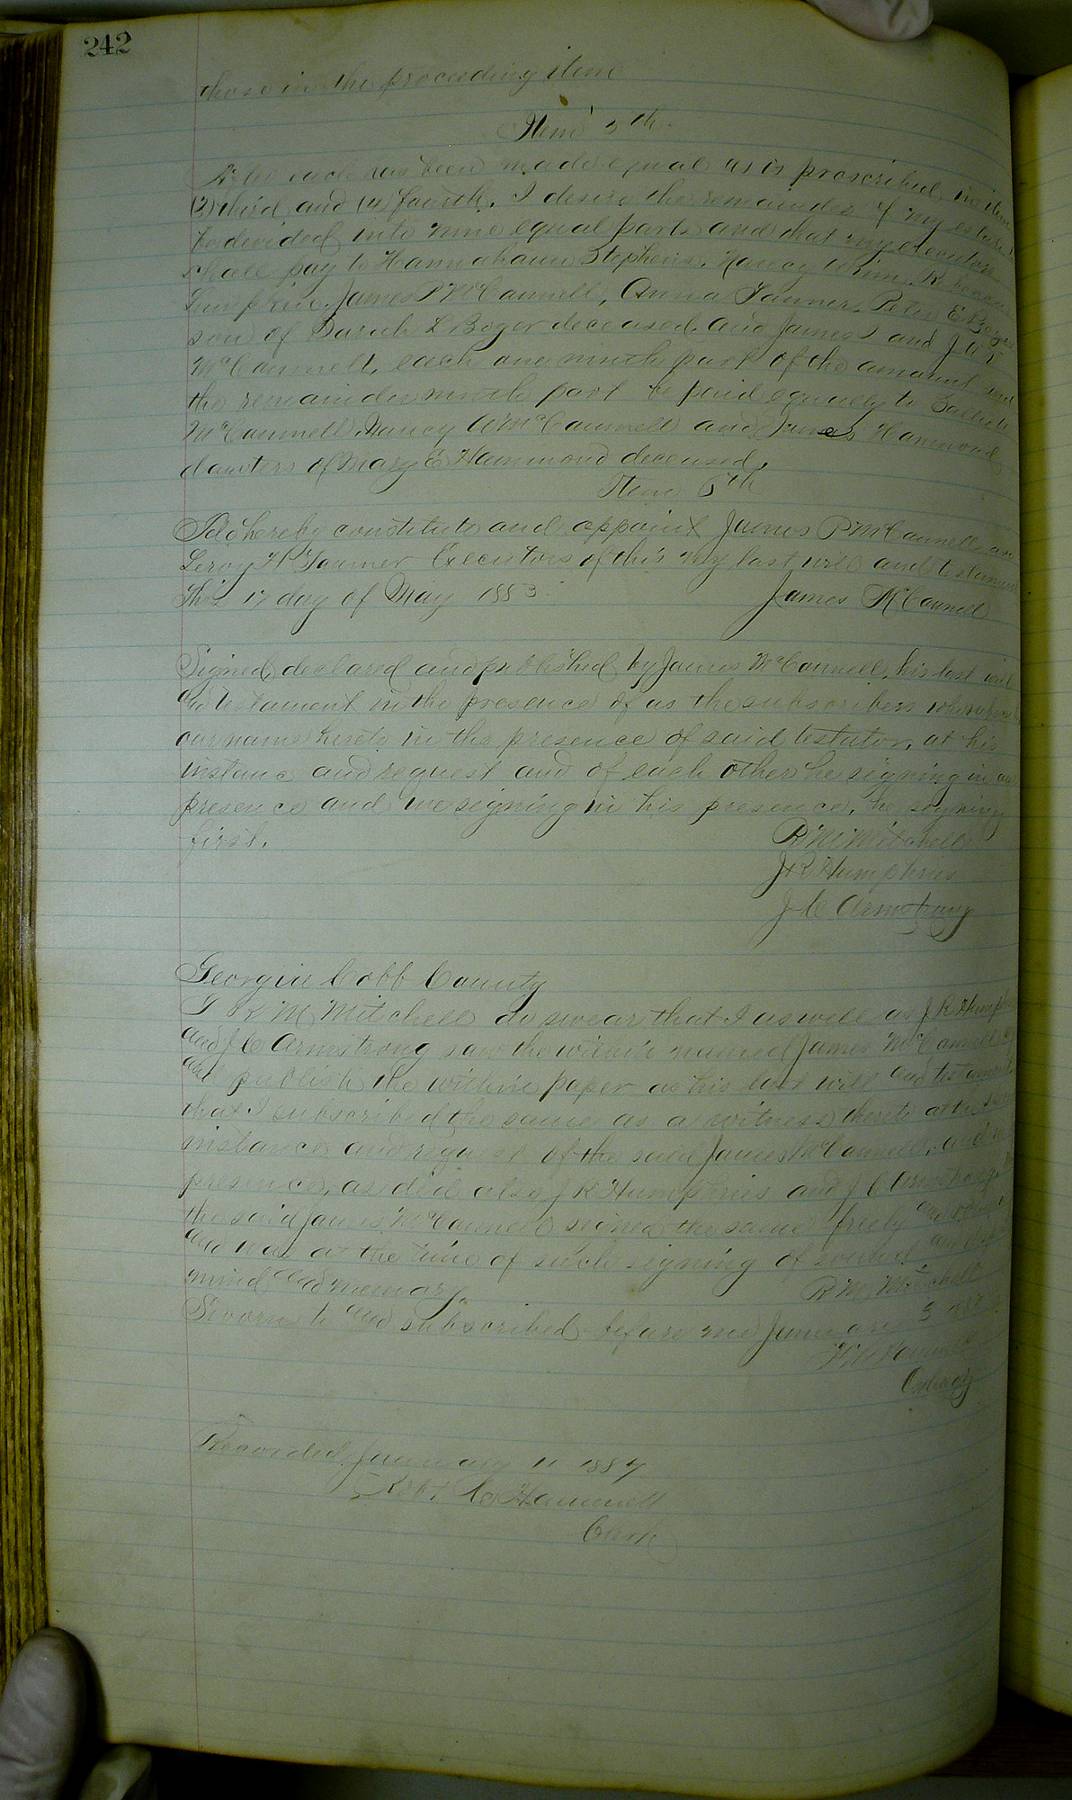 242
those in the proceeding item
Item 5th
After each has been made equal as is proscribed in item
(3) third and (4) fourth. I desire the remainder of my estate
be devided into nine equal parts and that my executors
shall pay to Hannahann Stephens, Nancy Winn, Rebecca
Lumpkin, James P McConnell, Anna Tanner, Peter E Boger
son of Sarah L Boger deceased, and James and J W T
McConnell, each one ninth part of the amount and
the remainder ninth part be paid equally to
McConnell Nancy W McConnell and James Hammond
dauters of Mary E Hammond deceased.
Item 6th
I do hereby constitute and appoint James P McConnell and
Leroy H Tanner Executors of this my last will and testament
This 17 day of May 1883. James McConnell
Signed, declared and published by James McConnell, his last will
and testament in the presence of us the subscribers who subscribed
our name hereto in the presence of said testator, at his
instance and request and of each other he signing in our
presence and we signing in his presence, he signing
first. R M Mitchell
J R Humphries
J C Armstrong
Georgia Cobb County
I R M Mitchell do swear that I as well as J R Humphries
and J C Armstrong saw the within named James McConnell
and publish the within paper as his last will and testament
that I subscribed the same as a witness thereto at the
instance and request of the said James McConnell, and in
presence, as did also J R Humphries and J C Armstrong
the said James McConnell signed the same freely and
and was at the time of such signing of sound and
mind and memory. R M Mitchell
Sworn to and subscribed before me January 3
Ordinary
Recorded January 11 1887
Clerk